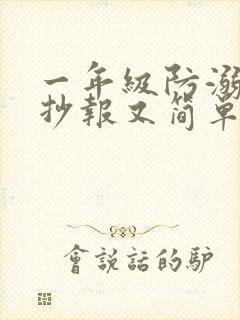 一年级防溺
抄報又简單
會說話的驴